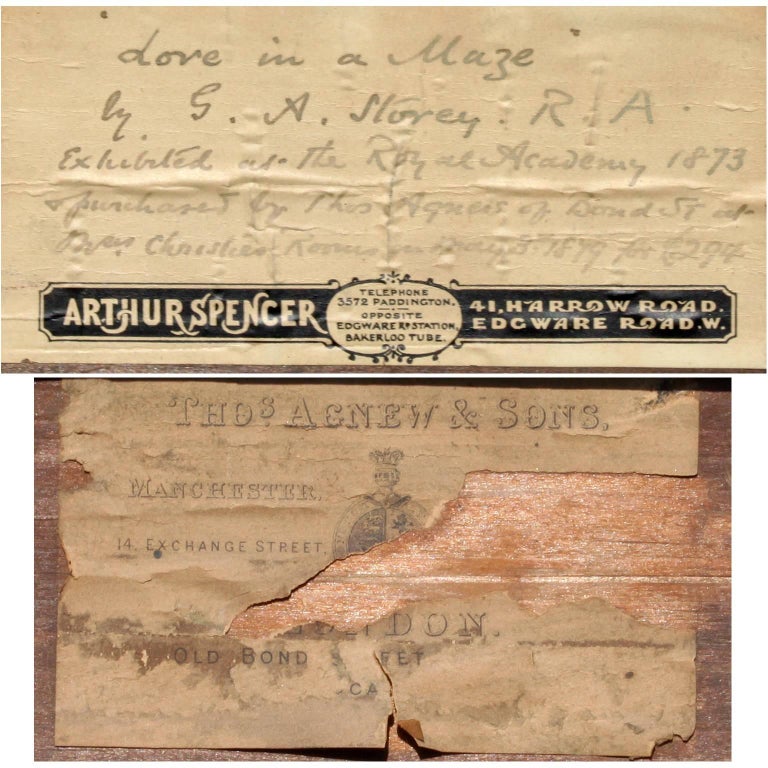 Love in a Maze
by G. A. Storey. R. A.
Exhibited at the Royal Academy 1873
& purchased by Thos Agnew of Bond St at
Christies Rooms on May 3 1879 for £294
ARTHUR SPENCER
TELEPHONE
3572 PADDINGTON.
OPPOSITE
EDGWARE RD STATION,
BAKERLOO TUBE.
41, HARROW ROAD.
EDGWARE ROAD. W.
THOS AGNEW & SONS,
MANCHESTER,
14, EXCHANGE STREET,
OLD BOND